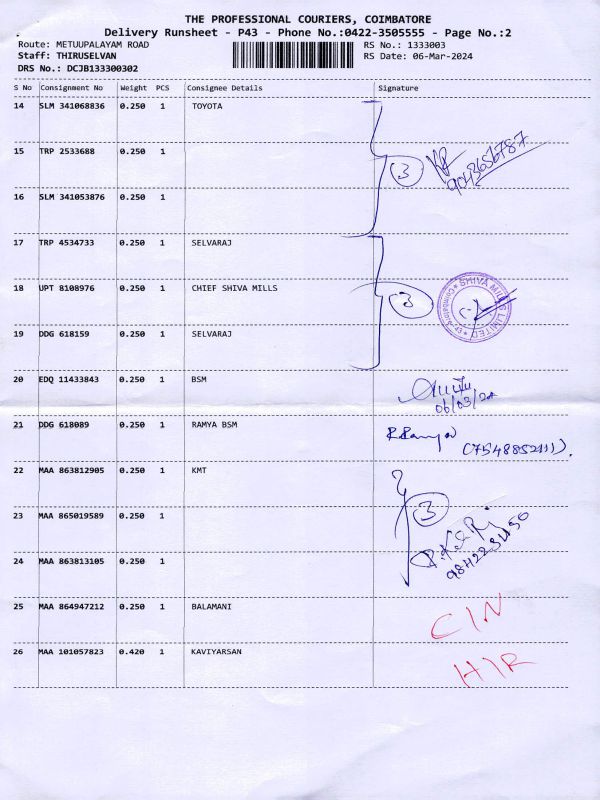 THE PROFESSIONAL COURIERS, COIMBATORE
Delivery Runsheet - P43 - Phone No.:0422-3505555 - Page No.:2
Route: METUUPALAYAM ROAD RS No.: 1333003
Staff: THIRUSELVAN RS Date: 06-Mar-2024
DRS No.: DCJB133300302
S No Consignment No Weight PCS Consignee Details Signature
14 SLM 341068836 0.250 1 TOYOTA
15 TRP 2533688 0.250 1
3 9043656787
16 SLM 341053876 0.250 1
17 TRP 4534733 0.250 1 SELVARAJ
18 UPT 8108976 0.250 1 CHIEF SHIVA MILLS
3 SHIVA MILLS LIMITED
19 DDG 618159 0.250 1 SELVARAJ
20 EDQ 11433843 0.250 1 BSM
06/03/24
21 DDG 618089 0.250 1 RAMYA BSM
R.Ramya
22 MAA 863812905 0.250 1 KMT
23 MAA 865019589 0.250 1
3
24 MAA 863813105 0.250 1
25 MAA 864947212 0.250 1 BALAMANI
C/N
26 MAA 101057823 0.420 1 KAVIYARSAN
H/R